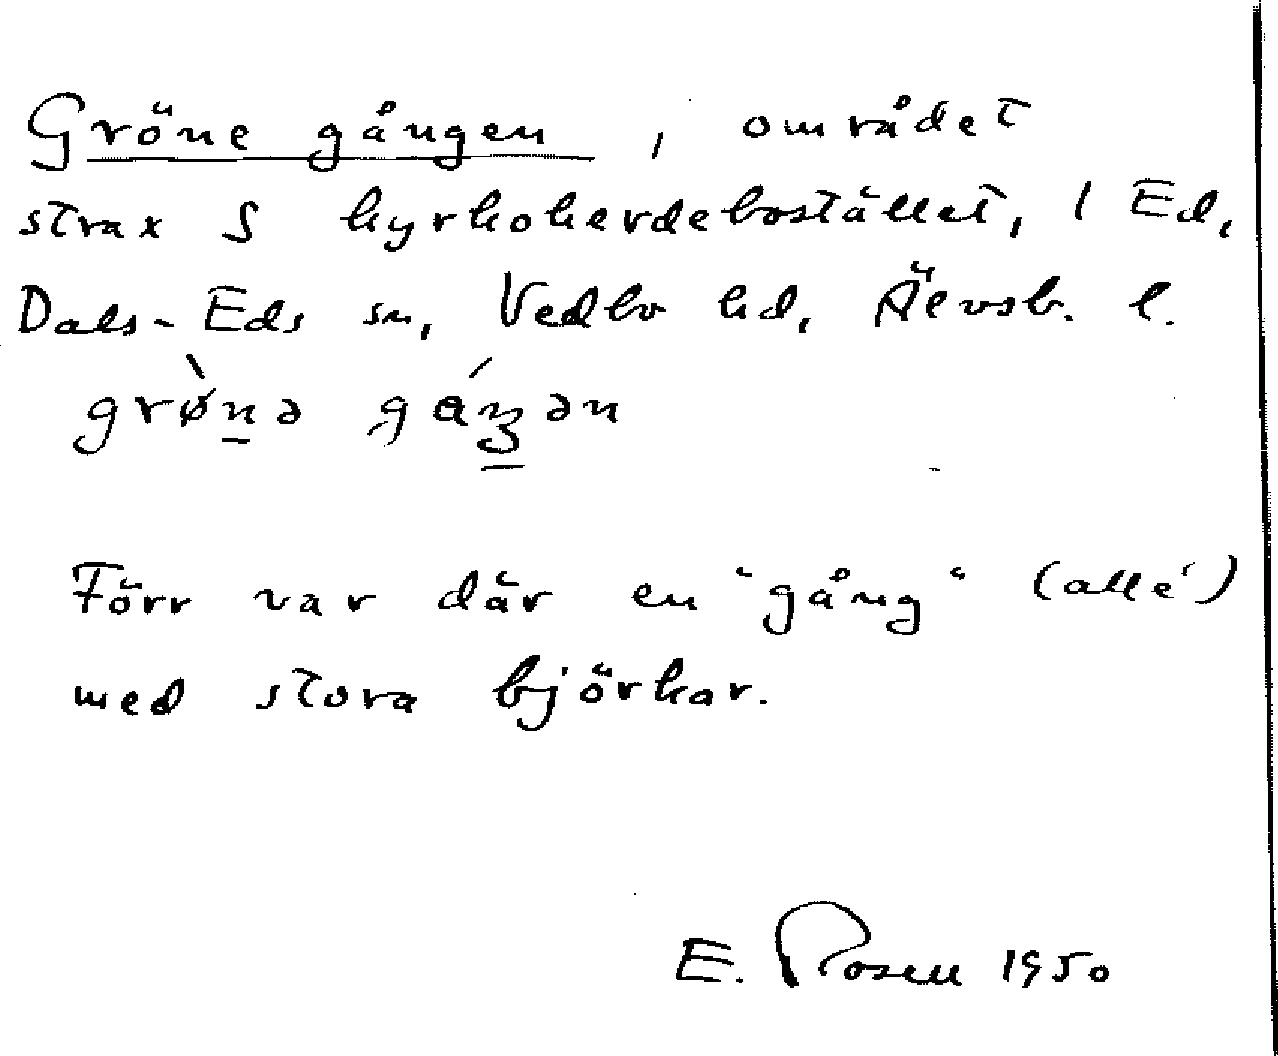 Gröne gången, området
strax S kyrkoherdebostället, 1 Ed,
Dals-Eds sn, Vedbo hd, Älvsb. l.
grø̀na gáŋən
Förr var där en "gång" (allé)
med stora björkar.
E. Rosell 1950